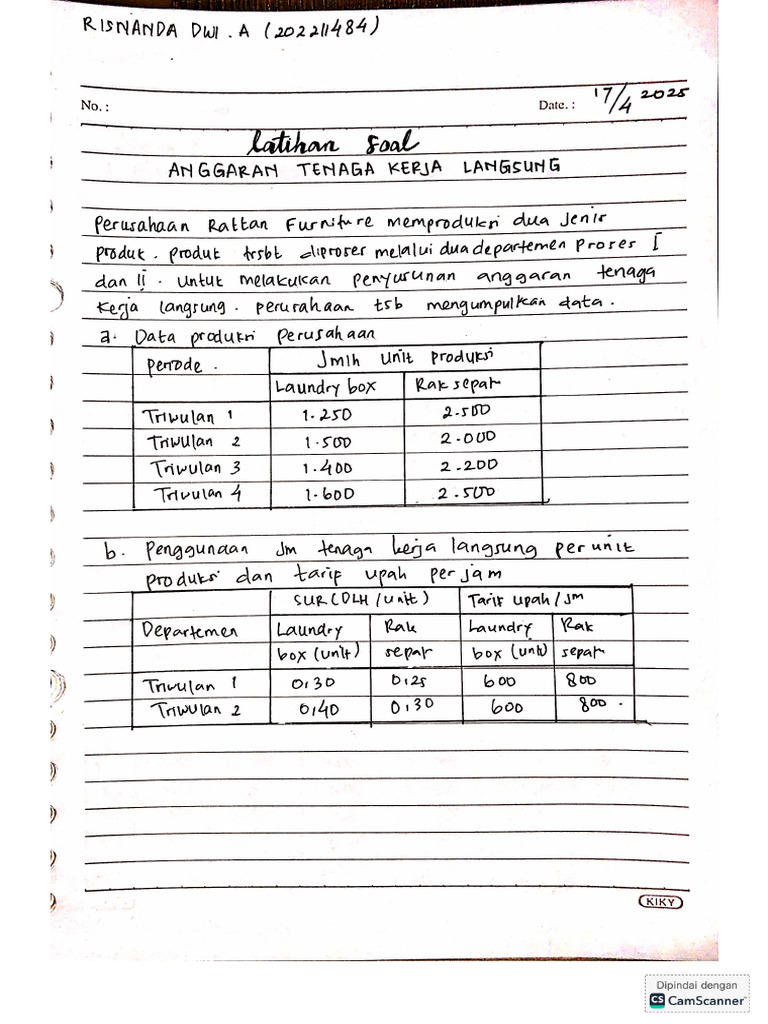 RISNANDA DWI . A (202211484)
No. : Date. : 17/4 2025
Latihan Soal
ANGGARAN TENAGA KERJA LANGSUNG
Perusahaan Rattan Furniture memproduksi dua jenis
produk. produk trsbt diproses melalui dua departemen Proses I
dan II. Untuk melakukan penyusunan anggaran tenaga
kerja langsung. perusahaan tsb mengumpulkan data.
a. Data produksi perusahaan
Periode. Jmlh Unit Produksi
Laundry box Rak sepat
Triwulan 1 1.250 2.500
Triwulan 2 1.500 2.000
Triwulan 3 1.400 2.200
Triwulan 4 1.600 2.500
b. Penggunaan Jm tenaga kerja langsung per unit
produksi dan tarif upah per jam
SUR (DLH / Unit) Tarif Upah / Jm
Departemen Laundry Rak Laundry Rak
box (unit) sepat box (unit) sepat
Triwulan 1 0,30 0,25 600 800
Triwulan 2 0,40 0,30 600 800.
KIKY
Dipindai dengan
CS CamScanner